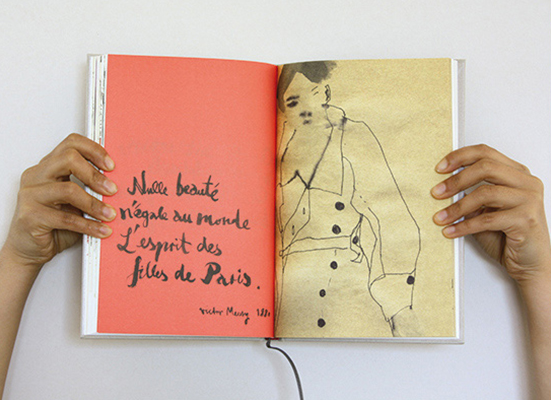 Nulle beauté
n'égale au monde
L'esprit des
filles de Paris.
Victor